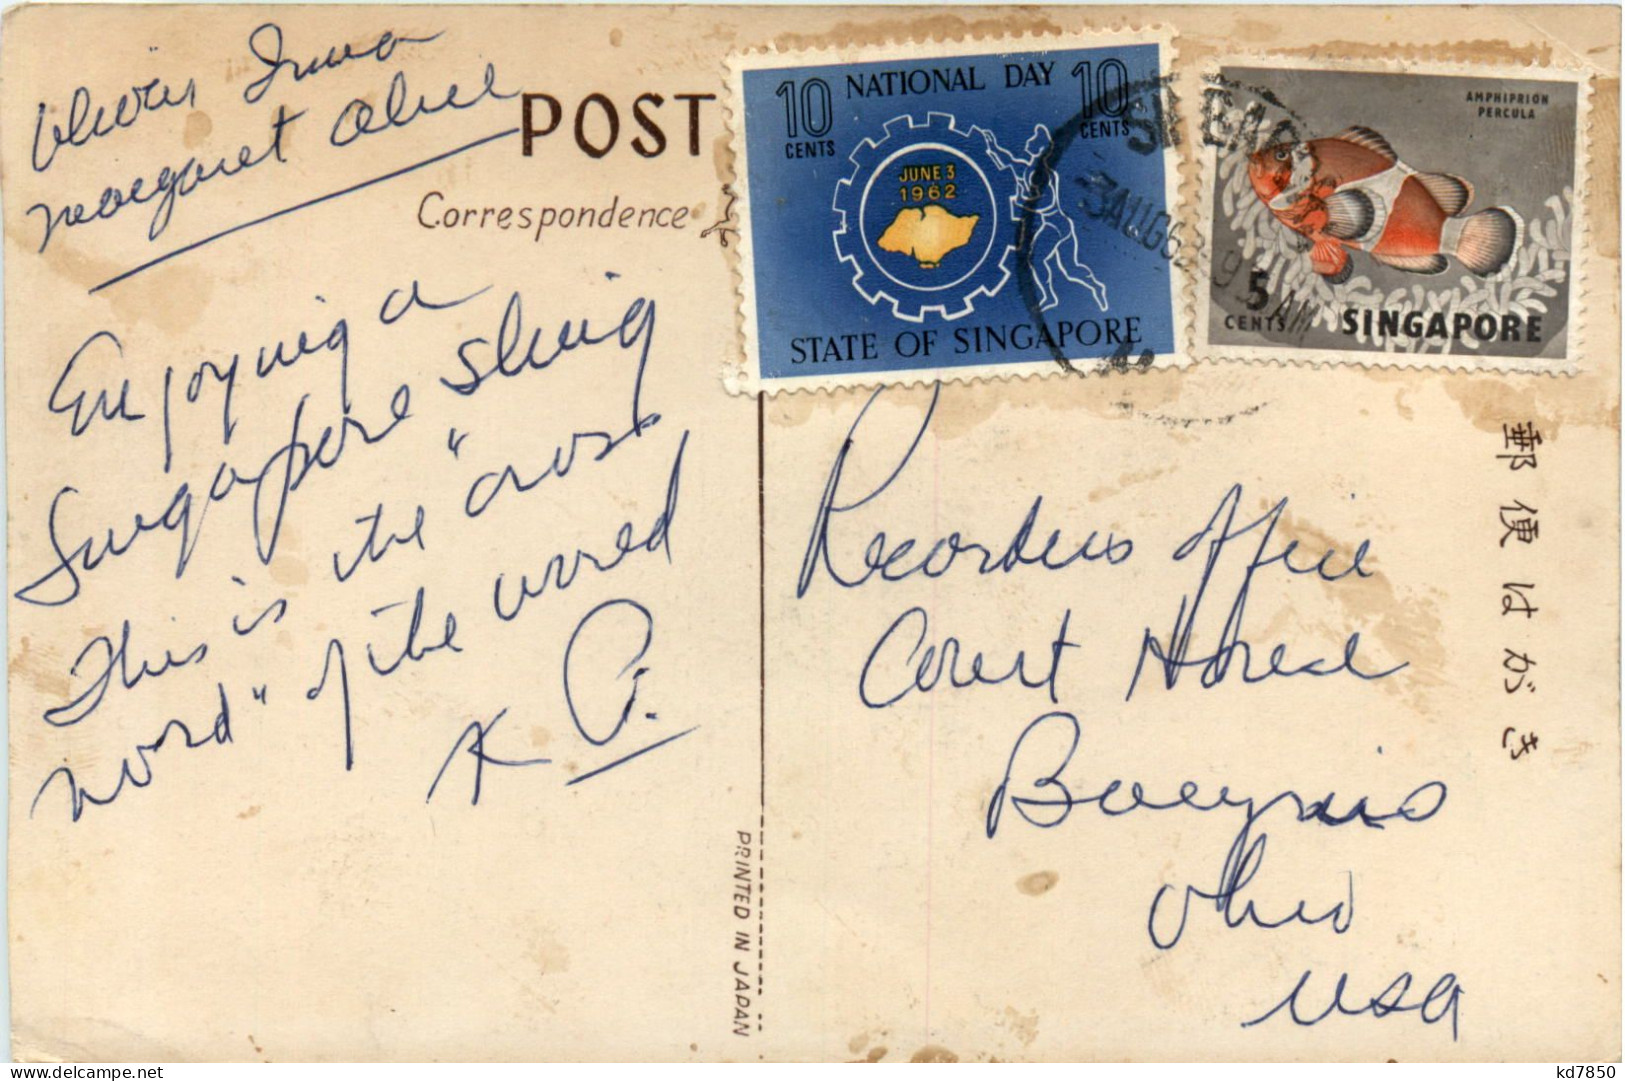 Irma
Margaret
Enjoying a
Singapore Sling
This is the "cross
word" of the world
K
POST
Correspondence
10 NATIONAL DAY 10
CENTS CENTS
JUNE 3
1962
STATE OF SINGAPORE
3 AUG 62
AM
AMPHIPRION
PERCULA
5
CENTS SINGAPORE
Recorders Office
Court House
Bucyrus
Ohio
USA
郵便はがき
PRINTED IN JAPAN
kd7850